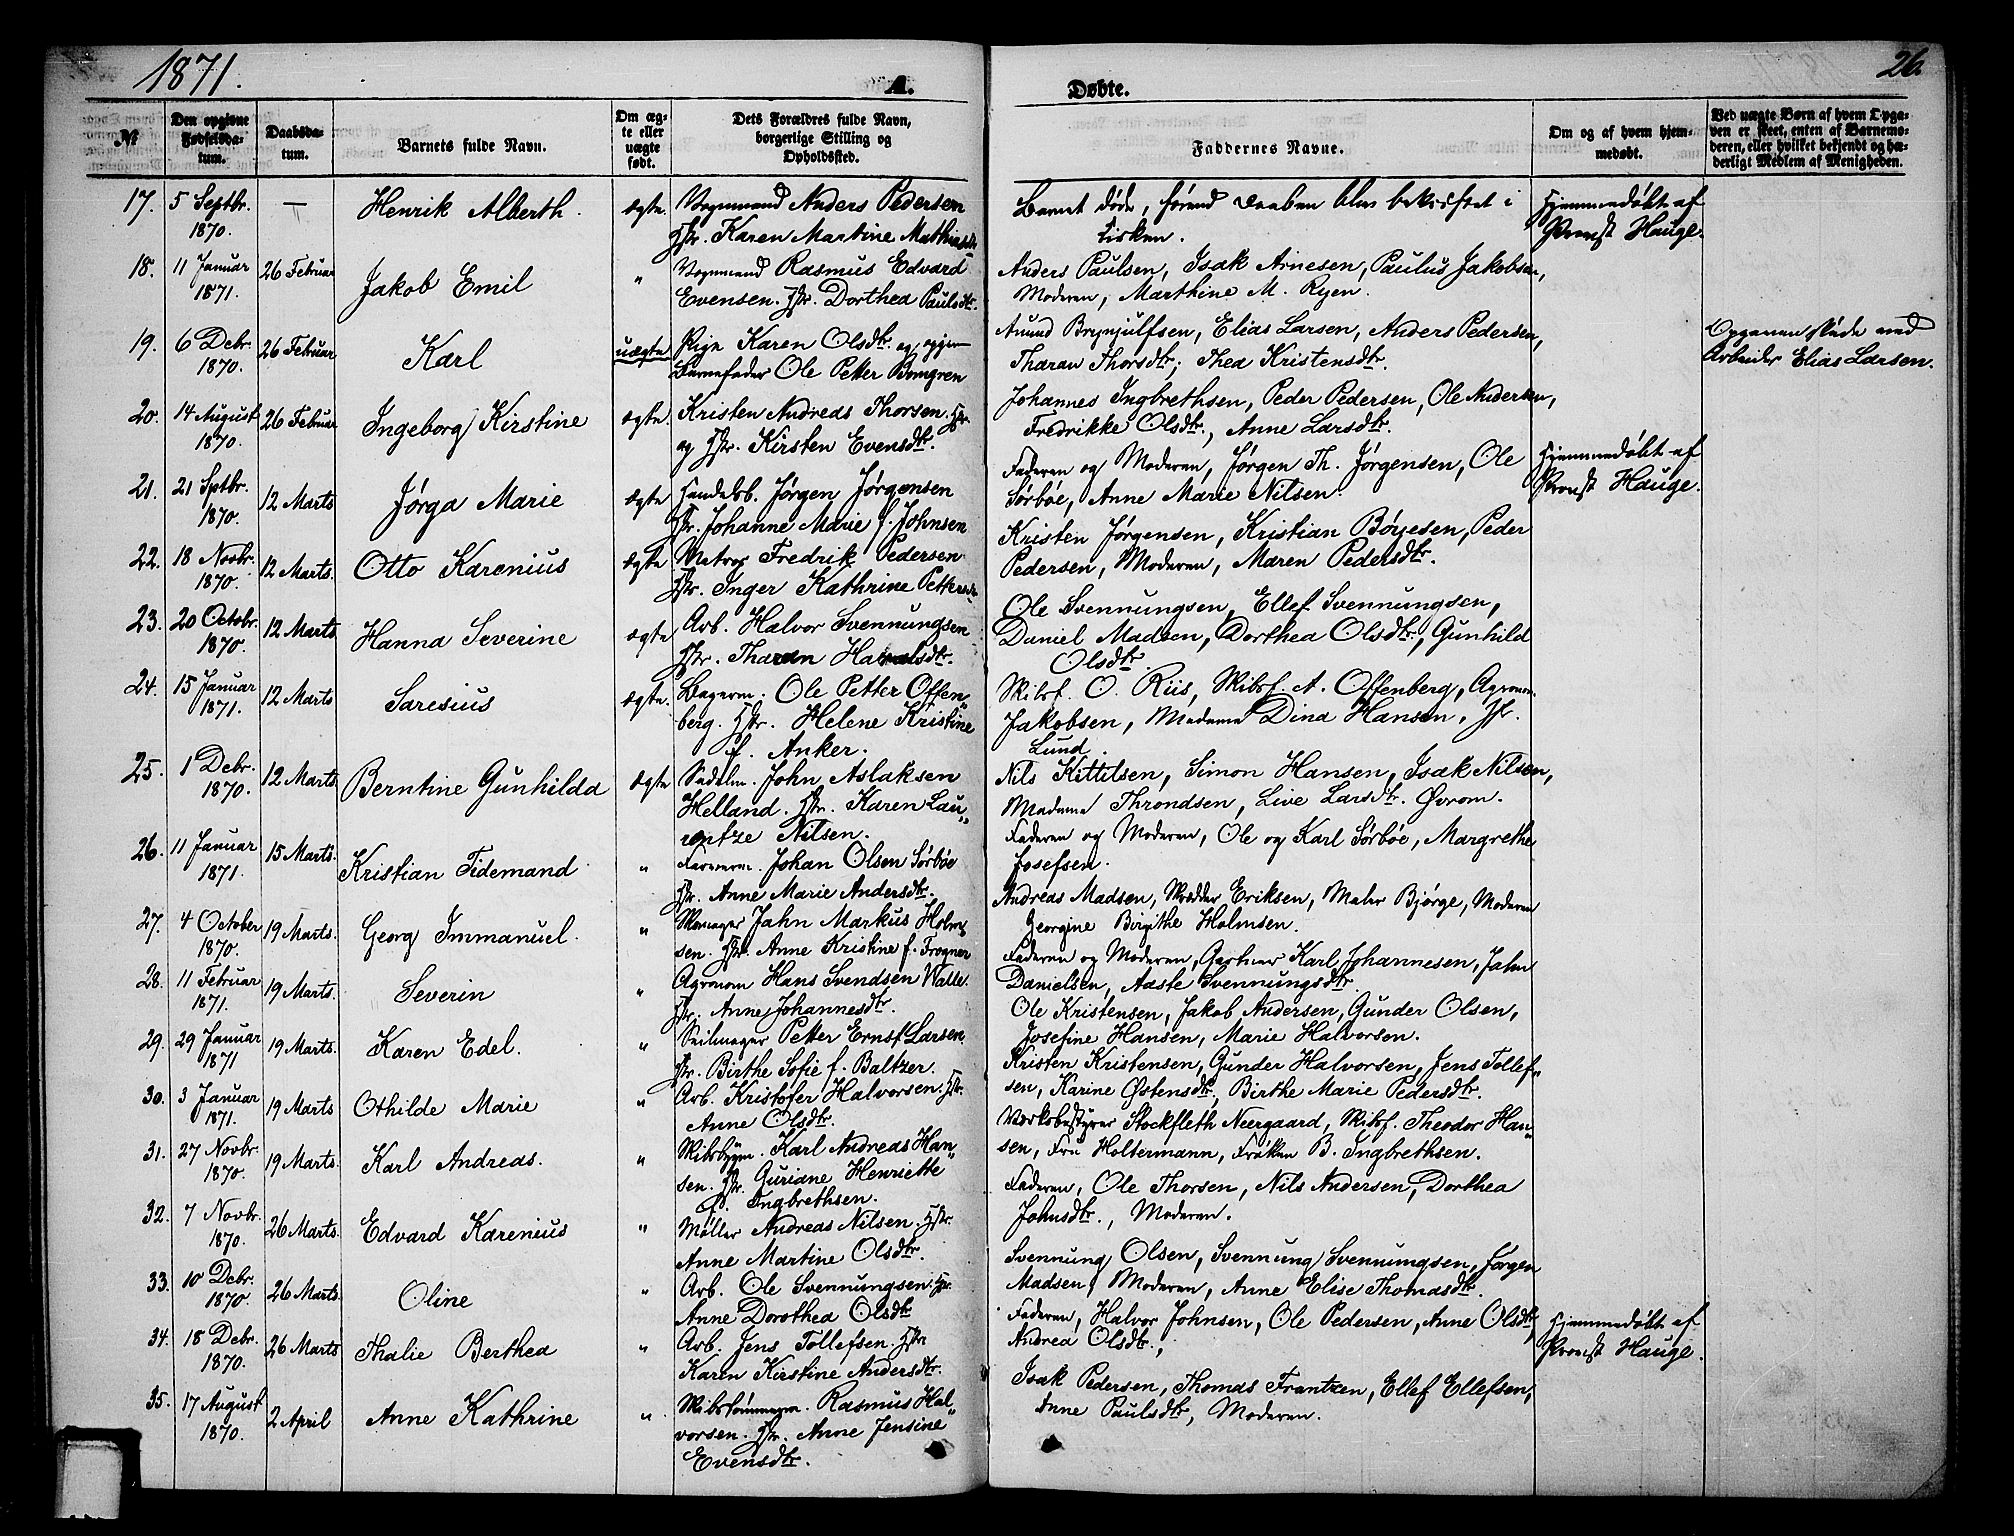 1871.
A.
Døbte.
26.
№
Den opgivne Fødselsdatum.
Daabsdatum.
Barnets fulde Navn.
Om ægte eller uægte født.
Dets Forældres fulde Navn, borgerlige Stilling og Opholdssted.
Faddernes Navne.
Om og af hvem hjemmedøbt.
Ved uægte Børn af hvem Opgaven er skeet, enten af Barnemoderen, eller hvilket bekjendt og hæderligt Medlem af Menigheden.
17. 5 Septbr. 1870. — Henrik Alberth. ægte. Vognmand Anders Pedersen
Hstr. Karen Martine Mathiasdtr.
Barnet døde, førend Daaben blev bekræftet i
Kirken.
Hjemmedøbt af
Provst Hauge.
18. 11 Januar 1871. 26 Februar Jakob Emil " Vognmand Rasmus Edvard
Evensen. Hstr. Dorthea Paulsdtr.
Anders Paulsen, Isak Arnesen, Paulus Jakobsen,
Moderen, Marthine M. Ryen.
19. 6 Debr. 1870. 26 Februar Karl uægte Pige Karen Olsdtr. og
Barnefader Ole Petter Bomgren
Aanund Brynjulfsen, Elias Larsen, Anders Pedersen,
Tharan Thorsdtr., Thea Kristensdtr.
Opgaven skede ved
Arbeider Elias Larsen.
20. 14 August 1870. 26 Februar Ingeborg Kirstine ægte. Kristen Andreas Thorsen.
og Hstr. Kirsten Evensdtr.
Johannes Ingbrethsen, Peder Pedersen, Ole Andersen,
Fredrikke Olsdtr., Anne Larsdtr.
21. 21 Sptbr. 1870. 12 Marts Jørga Marie ægte Handelsb. Jørgen Jørgensen
Hstr. Johanne Marie f. Johnsen
Faderen og Moderen, Jørgen Th. Jørgensen, Ole
Sørbøe, Anne Marie Nilsen.
Hjemmedøbt af
Provst Hauge.
22. 18 Novbr. 1870. 12 Marts. Otto Karenius ægte Matros Fredrik Pedersen
Hstr. Inger Kathrine Pettersdtr.
Kristen Jørgensen, Kristian Børjesen, Peder
Pedersen, Moderen, Maren Pedersdtr.
23. 20 Octobr. 1870. 12 Marts Hanna Severine ægte Arb. Halvor Svennungsen
Hstr. Tharan
Ole Svennungsen, Ellef Svennungsen,
Daniel Madsen, Dorthea Olsdtr., Gunhild
Olsdtr.
24. 15 Januar 1871. 12 Marts Saresius ægte. Bagerm. Ole Petter Offen„
berg. Hstr. Helene Kristine
f. Anker.
Skibsf. O. Riis, Skibsf. A. Offenberg, Agronom
Jakobsen, Madame Dina Hansen, Jfr.
Lund.
25. 1 Debr. 1870. 12 Marts Berntine Gunhilda ægte Sadelm. John Aslaksen
Helland. Hstr. Karen Lau„
rentze Nilsen.
Nils Kittilsen, Simon Hansen, Isak Nilsen,
Madame Throndsen, Live Larsdtr. Øvrom.
26. 11 Januar 1871. 15 Marts. Kristian Tidemand " Farverm. Johan Olsen Sørbøe
Hstr. Anne Marie Andersdtr.
Faderen og Moderen, Ole og Karl Sørbøe, Margrethe
Josefsen.
27. 4 October 1870. 19 Marts. Georg Immanuel. " Skomager Jahn Markus Holm„
sen. Hstr. Anne Kristine f. Frogner
Andreas Madsen, Skrædder Eriksen, Maler Bjørge, Moderen
Georgine Birgithe Holmsen.
28. 11 Februar 1871. 19 Marts. Severin " Agronom Hans Svendsen Walle.
Hstr. Anne Johannesdtr.
Faderen og Moderen, Gartner Karl Johannesen, Jahn
Danielsen, Aaste Svennungsdtr.
29. 29 Januar 1871 19 Marts. Karen Edel. " Seilmager Petter Ernst Larsen
Hstr. Birthe Sofie f. Baltzer.
Ole Kristensen, Jakob Andersen, Gunder Olsen,
Josefine Hansen, Marie Halvorsen.
30. 3 Januar 1871. 19 Marts Othilde Marie " Arb. Kristofer Halvorsen. Hstr.
Anne Olsdtr.
Kristen Kristensen, Gunder Halvorsen, Jens Tollef„
sen, Karine Østensdtr., Birthe Marie Pedersdtr.
31. 27 Novbr. 1870. 19 Marts. Karl Andreas. " Karl Andreas Han„
sen. Hstr. Guriane Henriette
f. Ingbrethsen.
Værksbestyrer Stockfleth Neergaard, Skibsf. Theodor Han„
sen, Fru Holtermann, Frøken B. Ingbrethsen.
32. 7 Novbr. 1870. 26 Marts. Edvard Karenius " Møller Andreas Nilsen. Hstr.
Anne Martine Olsdtr.
Faderen, Ole Thorsen, Nils Andersen, Dorthea
Johnsdtr., Moderen.
33. 10 Debr. 1870. 26 Marts. Oline " Arb. Ole Svennungsen. Hstr.
Anne Dorothea Olsdtr.
Svennung Olsen, Svennung Svennungsen, Jørgen
Madsen, Moderen, Anne Elise Thomasdtr.
34. 18 Debr. 1870. 26 Marts Thalie Berthea " Arb. Jens Tollefsen. Hstr.
Karen Kirstine Andersdtr.
Faderen, Halvor Johnsen, Ole Pedersen, Anne Olsdtr.,
Andrea Olsdtr.,
Hjemmedøbt af
Provst Hauge.
35. 17 August 1870. 2 April Anne Kathrine " Skibstømmerm. Rasmus Hal„
vorsen. Hstr. Anne Jensine
Evensdtr.
Isak Pedersen, Thomas Frantzen, Ellef Ellefsen,
Anne Paulsdtr., Moderen.